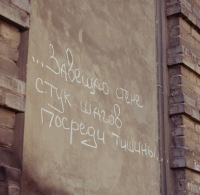 ...Завещаю стене
стук шагов
посреди тишины...